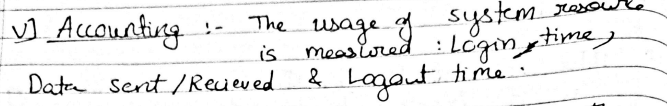 V] Accounting :- The usage of system resource
is measured : Login time,
Data sent/Recieved & Logout time.